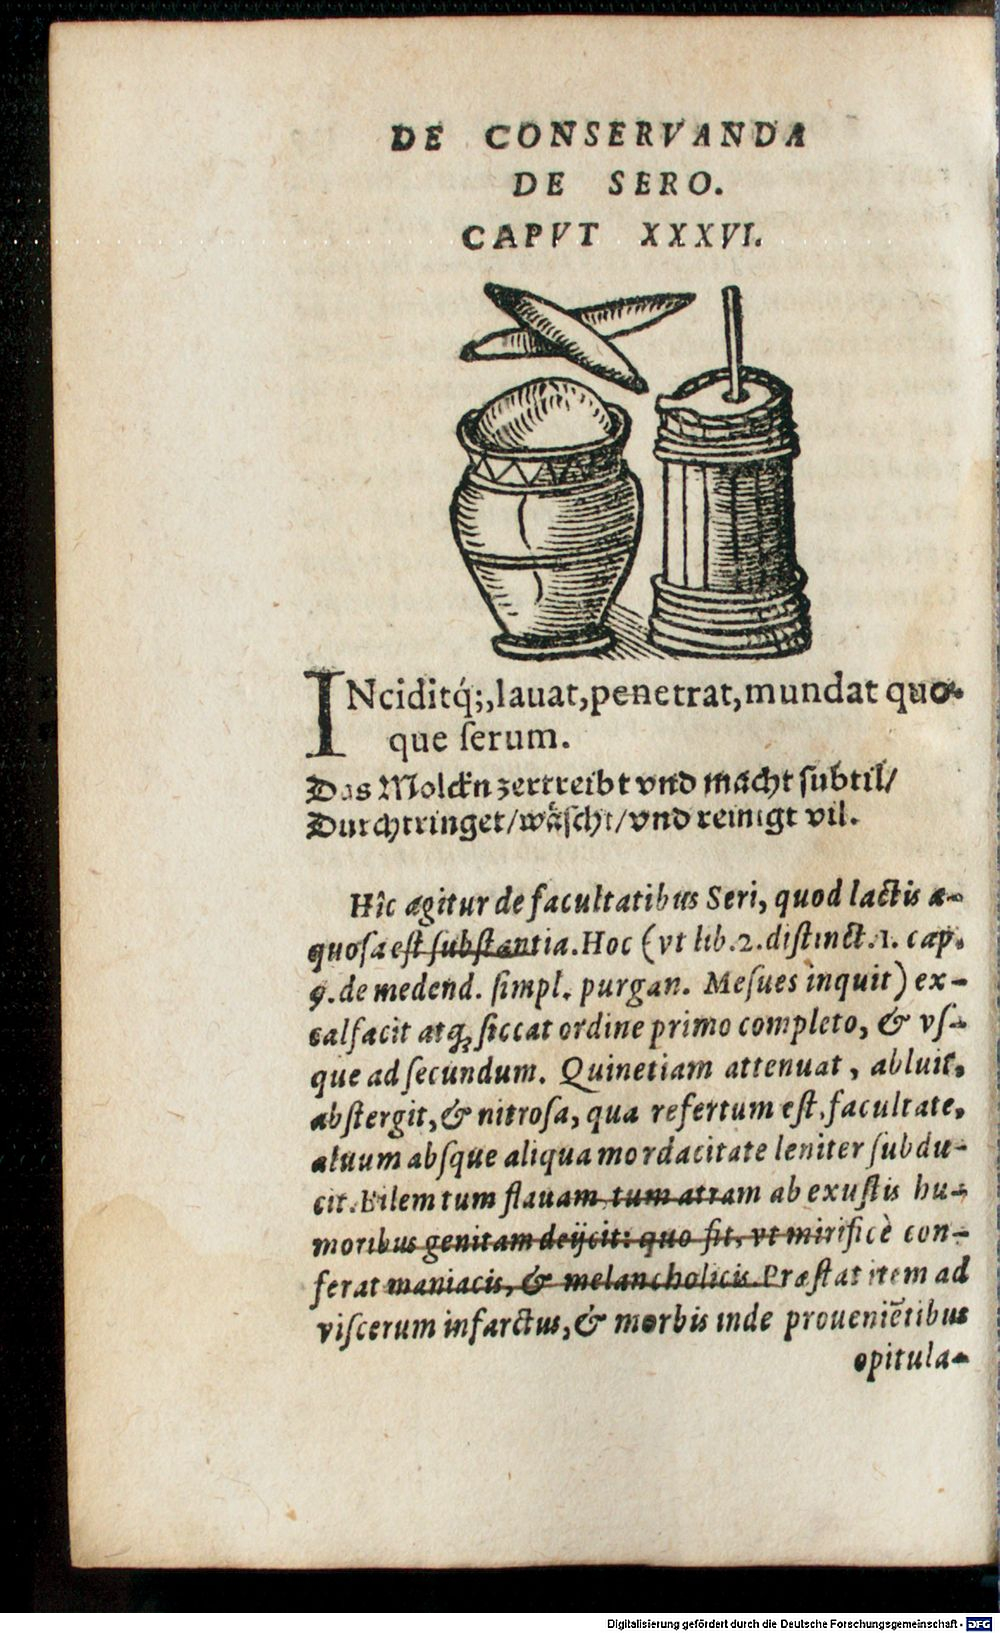 DE CONSERVANDA
DE SERO.
CAPVT XXXVI.
INciditq́;, lauat, penetrat, mundat quo-
que ſerum.
Das Molckn zertreibt vnd macht ſubtil/
Durchtringet/wäſcht/vnd reinigt vil.
Hîc agitur de facultatibus Seri, quod lactis a-
quoſa eſt ſubſtantia. Hoc (vt lib.2. diſtinct.1. cap.
9. de medend. ſimpl. purgan. Meſues inquit) ex-
calfacit atq; ſiccat ordine primo completo, & vſ-
que ad ſecundum. Quinetiam attenuat, abluit,
abſtergit, & nitroſa, qua refertum eſt, facultate,
aluum abſque aliqua mordacitate leniter ſubdu-
cit. Bilem tum flauam, tum atram ab exuſtis hu-
moribus genitam deijcit: quo fit, vt mirificè con-
ferat maniacis, & melancholicis. Præſtat item ad
viſcerum infarctus, & morbis inde proueniētibus
opitula-
Digitalisierung gefördert durch die Deutsche Forschungsgemeinschaft - DFG